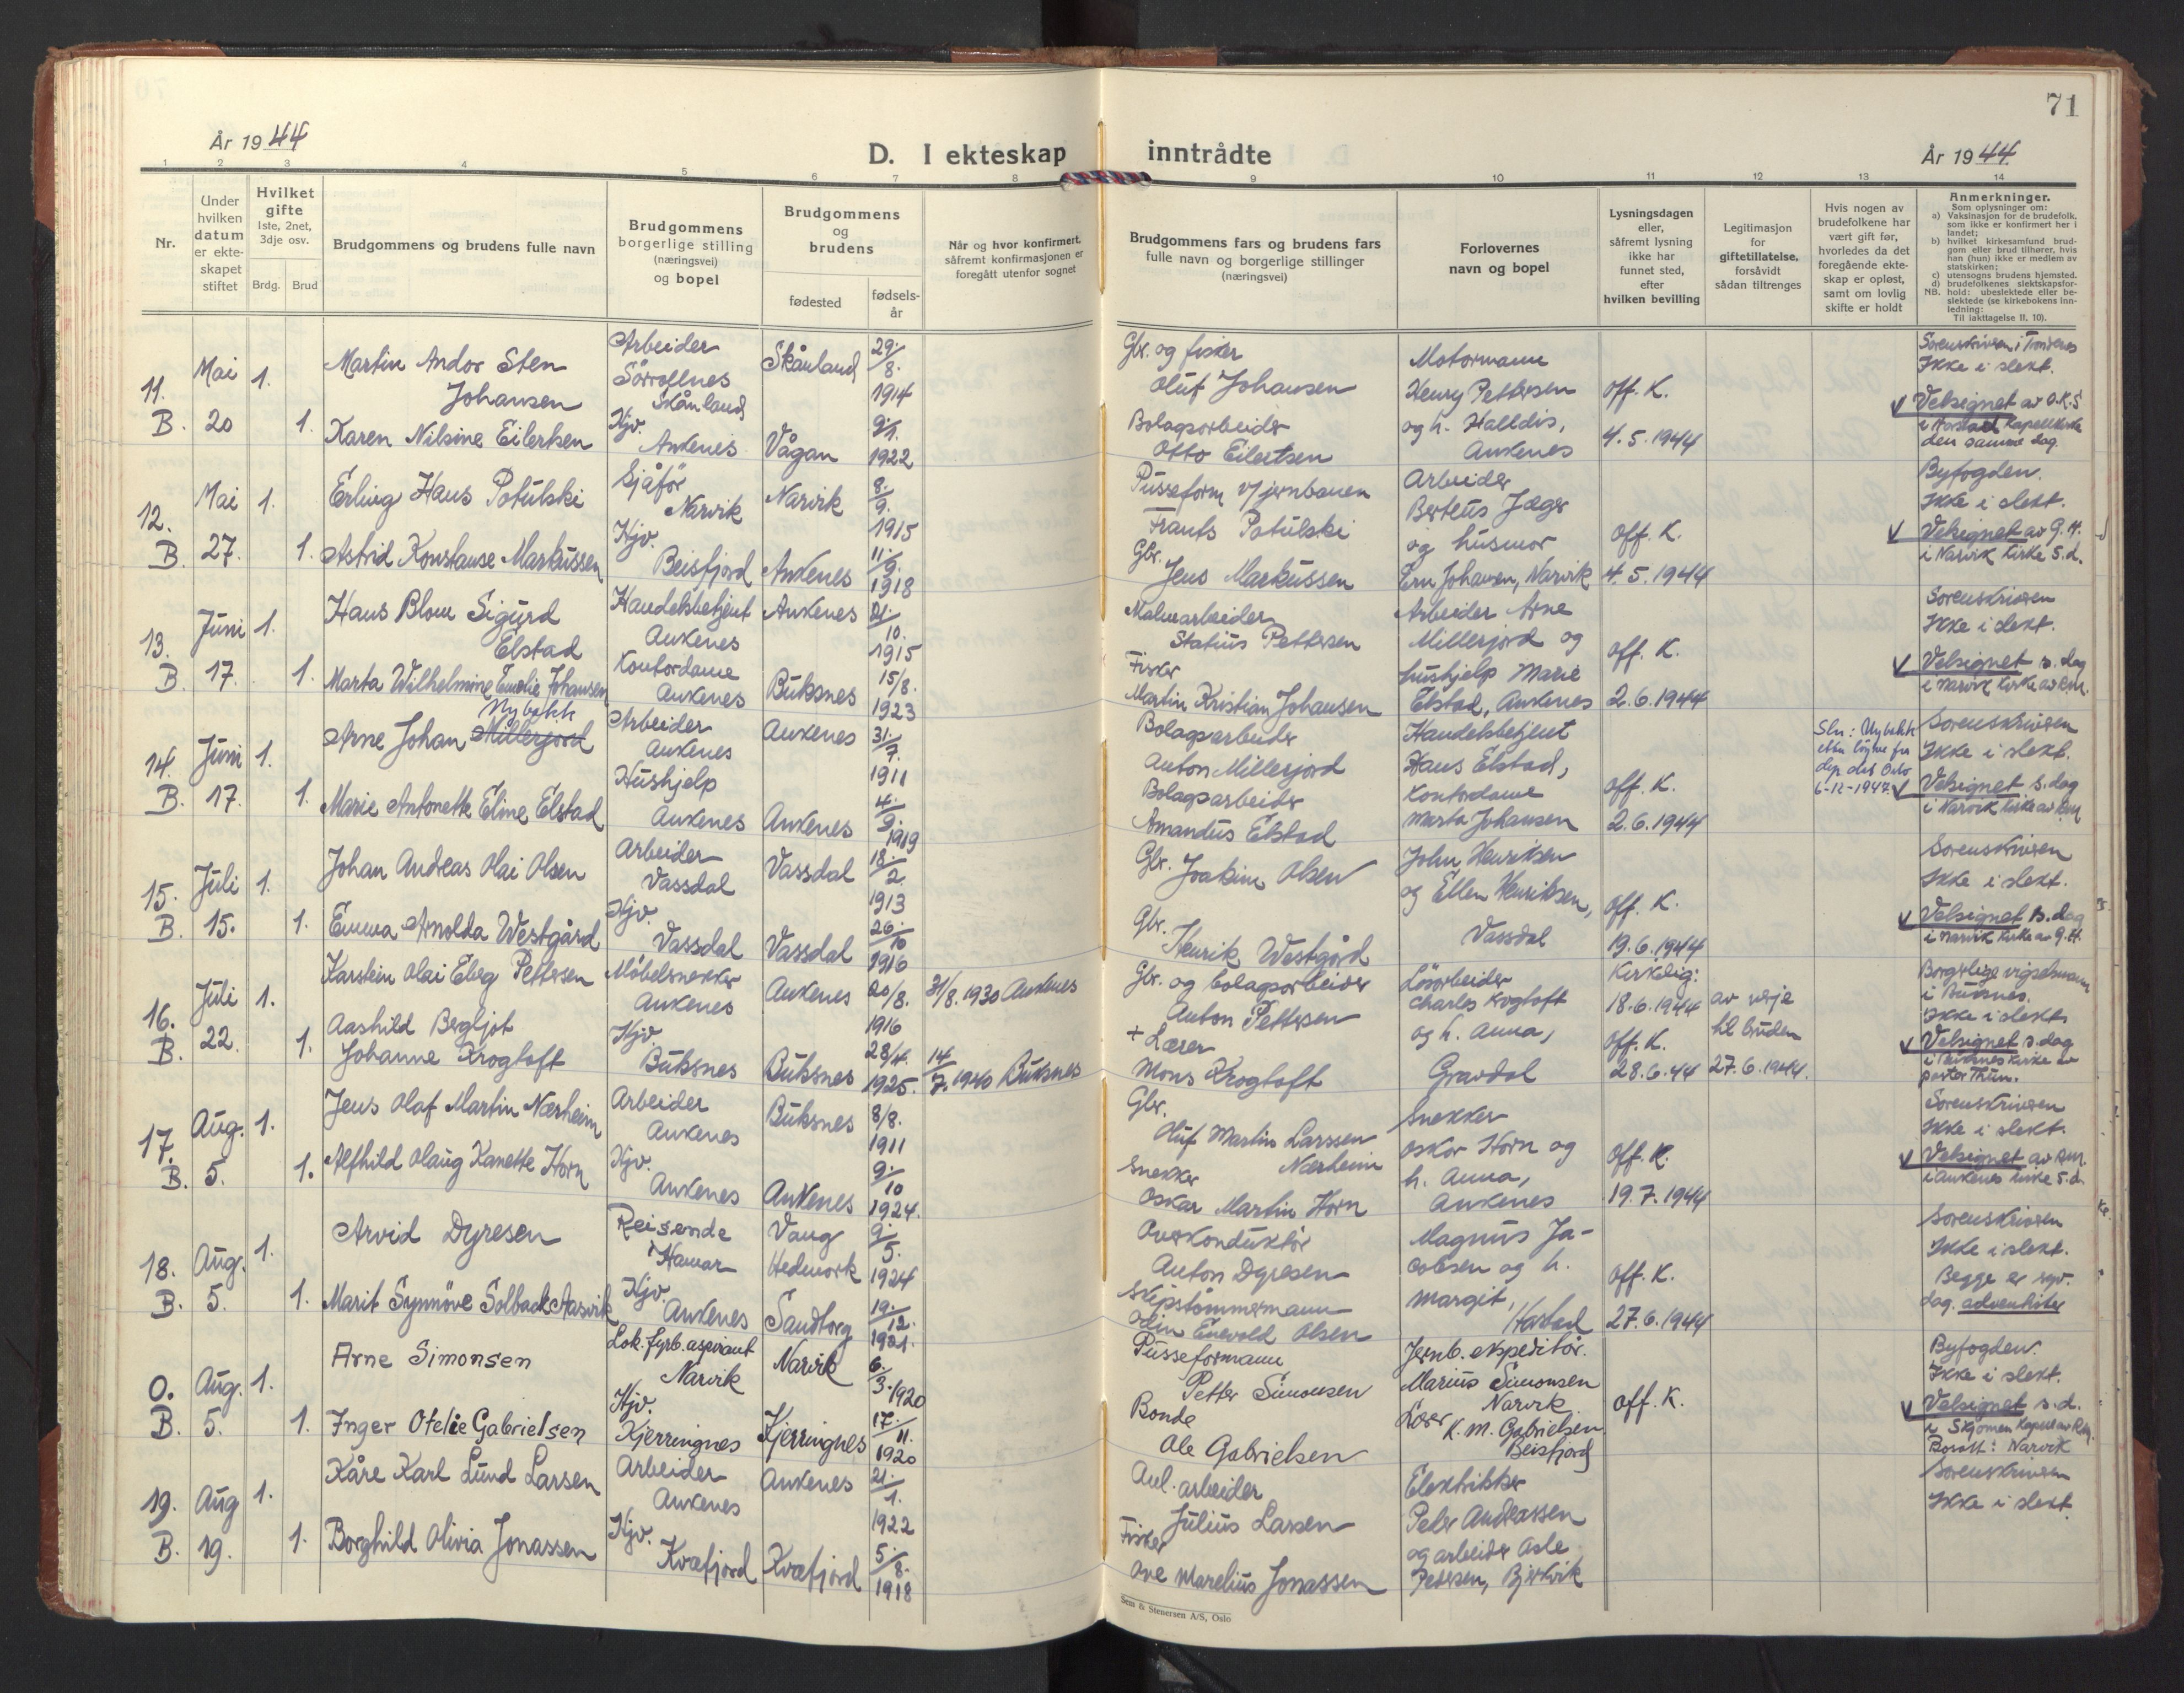 71
År 1944
D. I ekteskap inntrådte
År 1944
1 2 3 4 5 6 7 8 9 10 11 12 13 14
Nr.
Under hvilken datum er ekte-skapet stiftet
Hvilket gifte
1ste, 2net, 3dje osv.
Brdg. Brud
Brudgommens og brudens fulle navn
Brudgommens borgerlige stilling (næringsvei) og bopel
Brudgommens og brudens
fødested
fødsels-år
Når og hvor konfirmert, såfremt konfirmasjonen er foregått utenfor sognet
Brudgommens fars og brudens fars fulle navn og borgerlige stillinger (næringsvei)
Forlovernes navn og bopel
Lysningsdagen eller, såfremt lysning ikke har funnet sted, efter hvilken bevilling
Legitimasjon for giftetillatelse, forsåvidt sådan tiltrenges
Hvis nogen av brudefolkene har vært gift før, hvorledes da det foregående ekte-skap er opløst, samt om lovlig skifte er holdt
Anmerkninger.
Som oplysninger om:
a) Vaksinasjon for de brudefolk, som ikke er konfirmert her i landet;
b) hvilket kirkesamfund brud-gom eller brud tilhører, hvis han (hun) ikke er medlem av statskirken;
c) utensogns brudens hjemsted.
d) brudefolkenes slektskapsfor-hold: ubeslektede eller be-slektede (se kirkebokens inn-ledning:
NB.
Til iakttagelse II, 10).
11. B. Mai 20 1. 1.
Martin Andor Sten Johansen
Arbeider
Skånland
Skånland
29./8. 1914
Glr. og fisker
Oluf Johansen
Karen Nilsine Eilertsen
Hjv. Ankenes
Vågan
9./1. 1922
Bolagsarbeider
Otto Eilertsen
Motormann
Henry Pettersen
og h. Halldis,
Ankenes
off. K.
4.5.1944
Sorenskriveren i Trondenes
Ikke i slekt.
Velsignet av O.K.S
i Harstad Kapellkirke
den samme dag
12. B. Mai 27. 1. 1.
Erling Hans Potulski
Sjåfør
Narvik
Narvik
8./9. 1915
Pusseform. v/jernbanen
Frants Potulski
Astrid Konstanse Markussen
Hjv.
Beisfjord
Ankenes
11./9. 1918
Gbr.
Jens Markussen
Arbeider
Berteus Jæger
og husmor
Narvik
off. K.
4.5.1944
Byfogden.
Ikke i slekt.
Velsignet av G.H.
i Narvik Kirke s.d.
13. B. Juni 17. 1. 1.
Hans Blom Sigurd
Elstad
Handelsbetjent
Ankenes
Ankenes
21./10. 1915
Malmarbeider
Statius Pettersen
Marta Wilhelmine Emelie Johansen
Kontordame
Ankenes
Buksnes
15/8. 1923
Fisker
Martin Kristian Johansen
Arbeider Arne
Millerjord og
hushjelp Marie
Elstad, Ankenes
off. K.
2.6.1944
Sorenskriveren
Ikke i slekt.
Velsignet s. dag
i Narvik Kirke av RM.
14. B. Juni 17. 1. 1.
Nybakk
Arne Johan Millerjord
Arbeider
Ankenes
Ankenes
31./7. 1911
Bolagsarbeider
Anton Millerjord
Marie Antonette Eline Elstad
Hushjelp
Ankenes
Ankenes
4./9. 1919
Bolagsarbeider
Amandus Elstad
Handelsbetjent
Hans Elstad,
Kontordame
Marta Johansen
off. K.
2.6.1944
Sln: Nybakk
6-12-1947.
Sorenskriveren
Ikke i slekt.
Velsignet s. dag
i Narvik Kirke av RM
15. B. Juli 15. 1. 1.
Johan Andreas Olai Olsen
Arbeider
Vassdal
Vassdal
18./2. 1913
Gbr. Joakim Olsen
Emma Arnolda Westgård
Hjv.
Vassdal
Vassdal
26./10 1916
Gbr.
Henrik Westgård
John Henriksen
og Ellen Henriksen,
Vassdal
off. K.
19.6.1944
Sorenskriveren
Ikke i slekt.
Velsignet s. dag
i Narvik Kirke av G.H.
16. B. Juli 22. 1. 1.
Karstein Olai Eberg Pettersen
Møbelsnekker
Ankenes
Ankenes
20/8. 1916
31/8. 1930 Ankenes
Gbr. og bolagsarbeider
Anton Pettersen
Aashild Bergljot
Johanne Krogtoft
Hjv.
Buksnes
Buksnes
28/4. 1925.
14/7. 1940 Buksnes
+ Lærer
Mons Krogtoft
Løsarbeider
Charles Krogtoft
og h. Anna,
Gravdal
Kirkelig:
18.6.1944
off. K.
28.6.44
av verje
til bruden
27.6.1944.
Borgerlige vigselsmann
i Buksnes.
Ikke i slekt.
Velsignet s. dag
i Buksnes Kirke av
pastor Thun.
17. B. Aug. 5. 1. 1.
Jens Olaf Martin Nærheim
Arbeider
Ankenes
Buksnes
8/8. 1911
Gbr.
Oluf Martin Larssen
Nærheim
Alfhild Olaug Kanette Horn
Hjv.
Ankenes
Ankenes
9./10 1924.
Snekker
Oskar Martin Horn
Snekker
Oskar Horn og
h. Anna,
Ankenes
off. K.
19.7.1944
Sorenskriveren
Ikke i slekt.
Velsignet av RM.
i Ankenes kirke s.d.
18. B. Aug. 5. 1. 1.
Arvid Dyresen
Reisende
Hamar
Vang
Hedmark
9./5. 1924
Overkonduktør
Anton Dyresen
Marit Synnöve Solbakk Aasvik
Hjv.
Ankenes
Sandtorg
19./12. 1921.
Skipstømmermann
Odin Enevold Olsen
Magnus Ja-
cobsen og h.
Margit,
Harstad
off. K.
27.6.1944
Sorenskriveren
Ikke i slekt.
Begge er syv.
dag. adventister
0. B. Aug. 5. 1. 1.
Arne Simonsen
Lok. fyrb. aspirant
Narvik
Narvik
6./3. 1920
Pusseformann
Petter Simonsen
Inger Otelie Gabrielsen
Hjv.
Kjerringnes
Kjerringnes
17./11. 1920
Bonde
Ole Gabrielsen
Jernb. ekspeditør.
Marius Simonsen
Narvik.
Lærer K. M. Gabrielsen
Beisfjord
off. K.
Byfogden.
Ikke i slekt.
Velsignet s.d.
i Skjomen Kapell av RM.
Bosatt: Narvik
19. B. Aug 19. 1. 1.
Kåre Karl Lund Larsen
Arbeider
Ankenes
Ankenes
21./1. 1922
Anl. arbeider
Julius Larsen
Borghild Olivia Jonassen
Hjv.
Kvæfjord
Kvæfjord
5./8. 1918
Fisker
Ove Marelius Jonassen
Elektriker
Peder Andreassen
og arbeider Asle
Petersen, Bjerkvik
Sorenskriveren
Ikke i slekt.
Sem & Stenersen A/S, Oslo